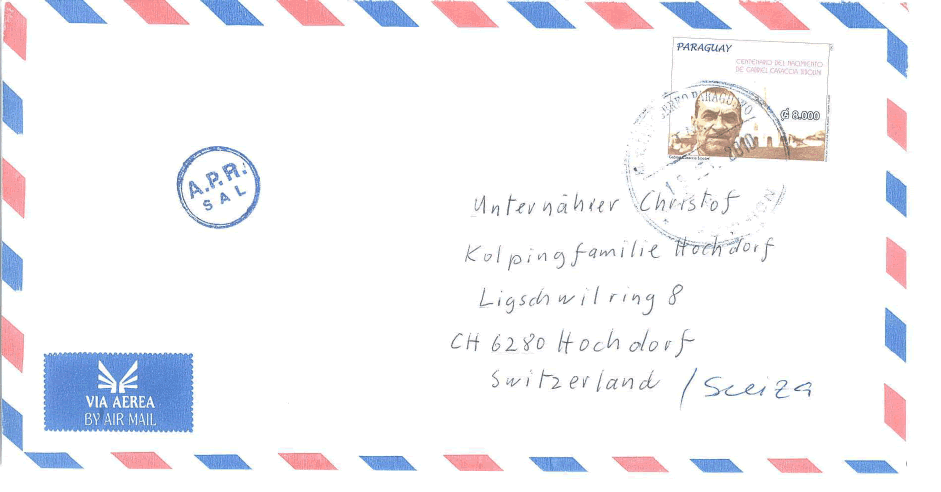 PARAGUAY
CENTENARIO DEL NACIMIENTO
DE GABRIEL CASACCIA BIBOLINI
₲ 8.000
Gabriel Casaccia Bibolini
CORREO PARAGUAYO
2010
A.P.R.
SAL
Unternährer Christof
Kolpingfamilie Hochdorf
Ligschwilring 8
CH 6280 Hochdorf
Switzerland / Sueiza
VIA AEREA
BY AIR MAIL